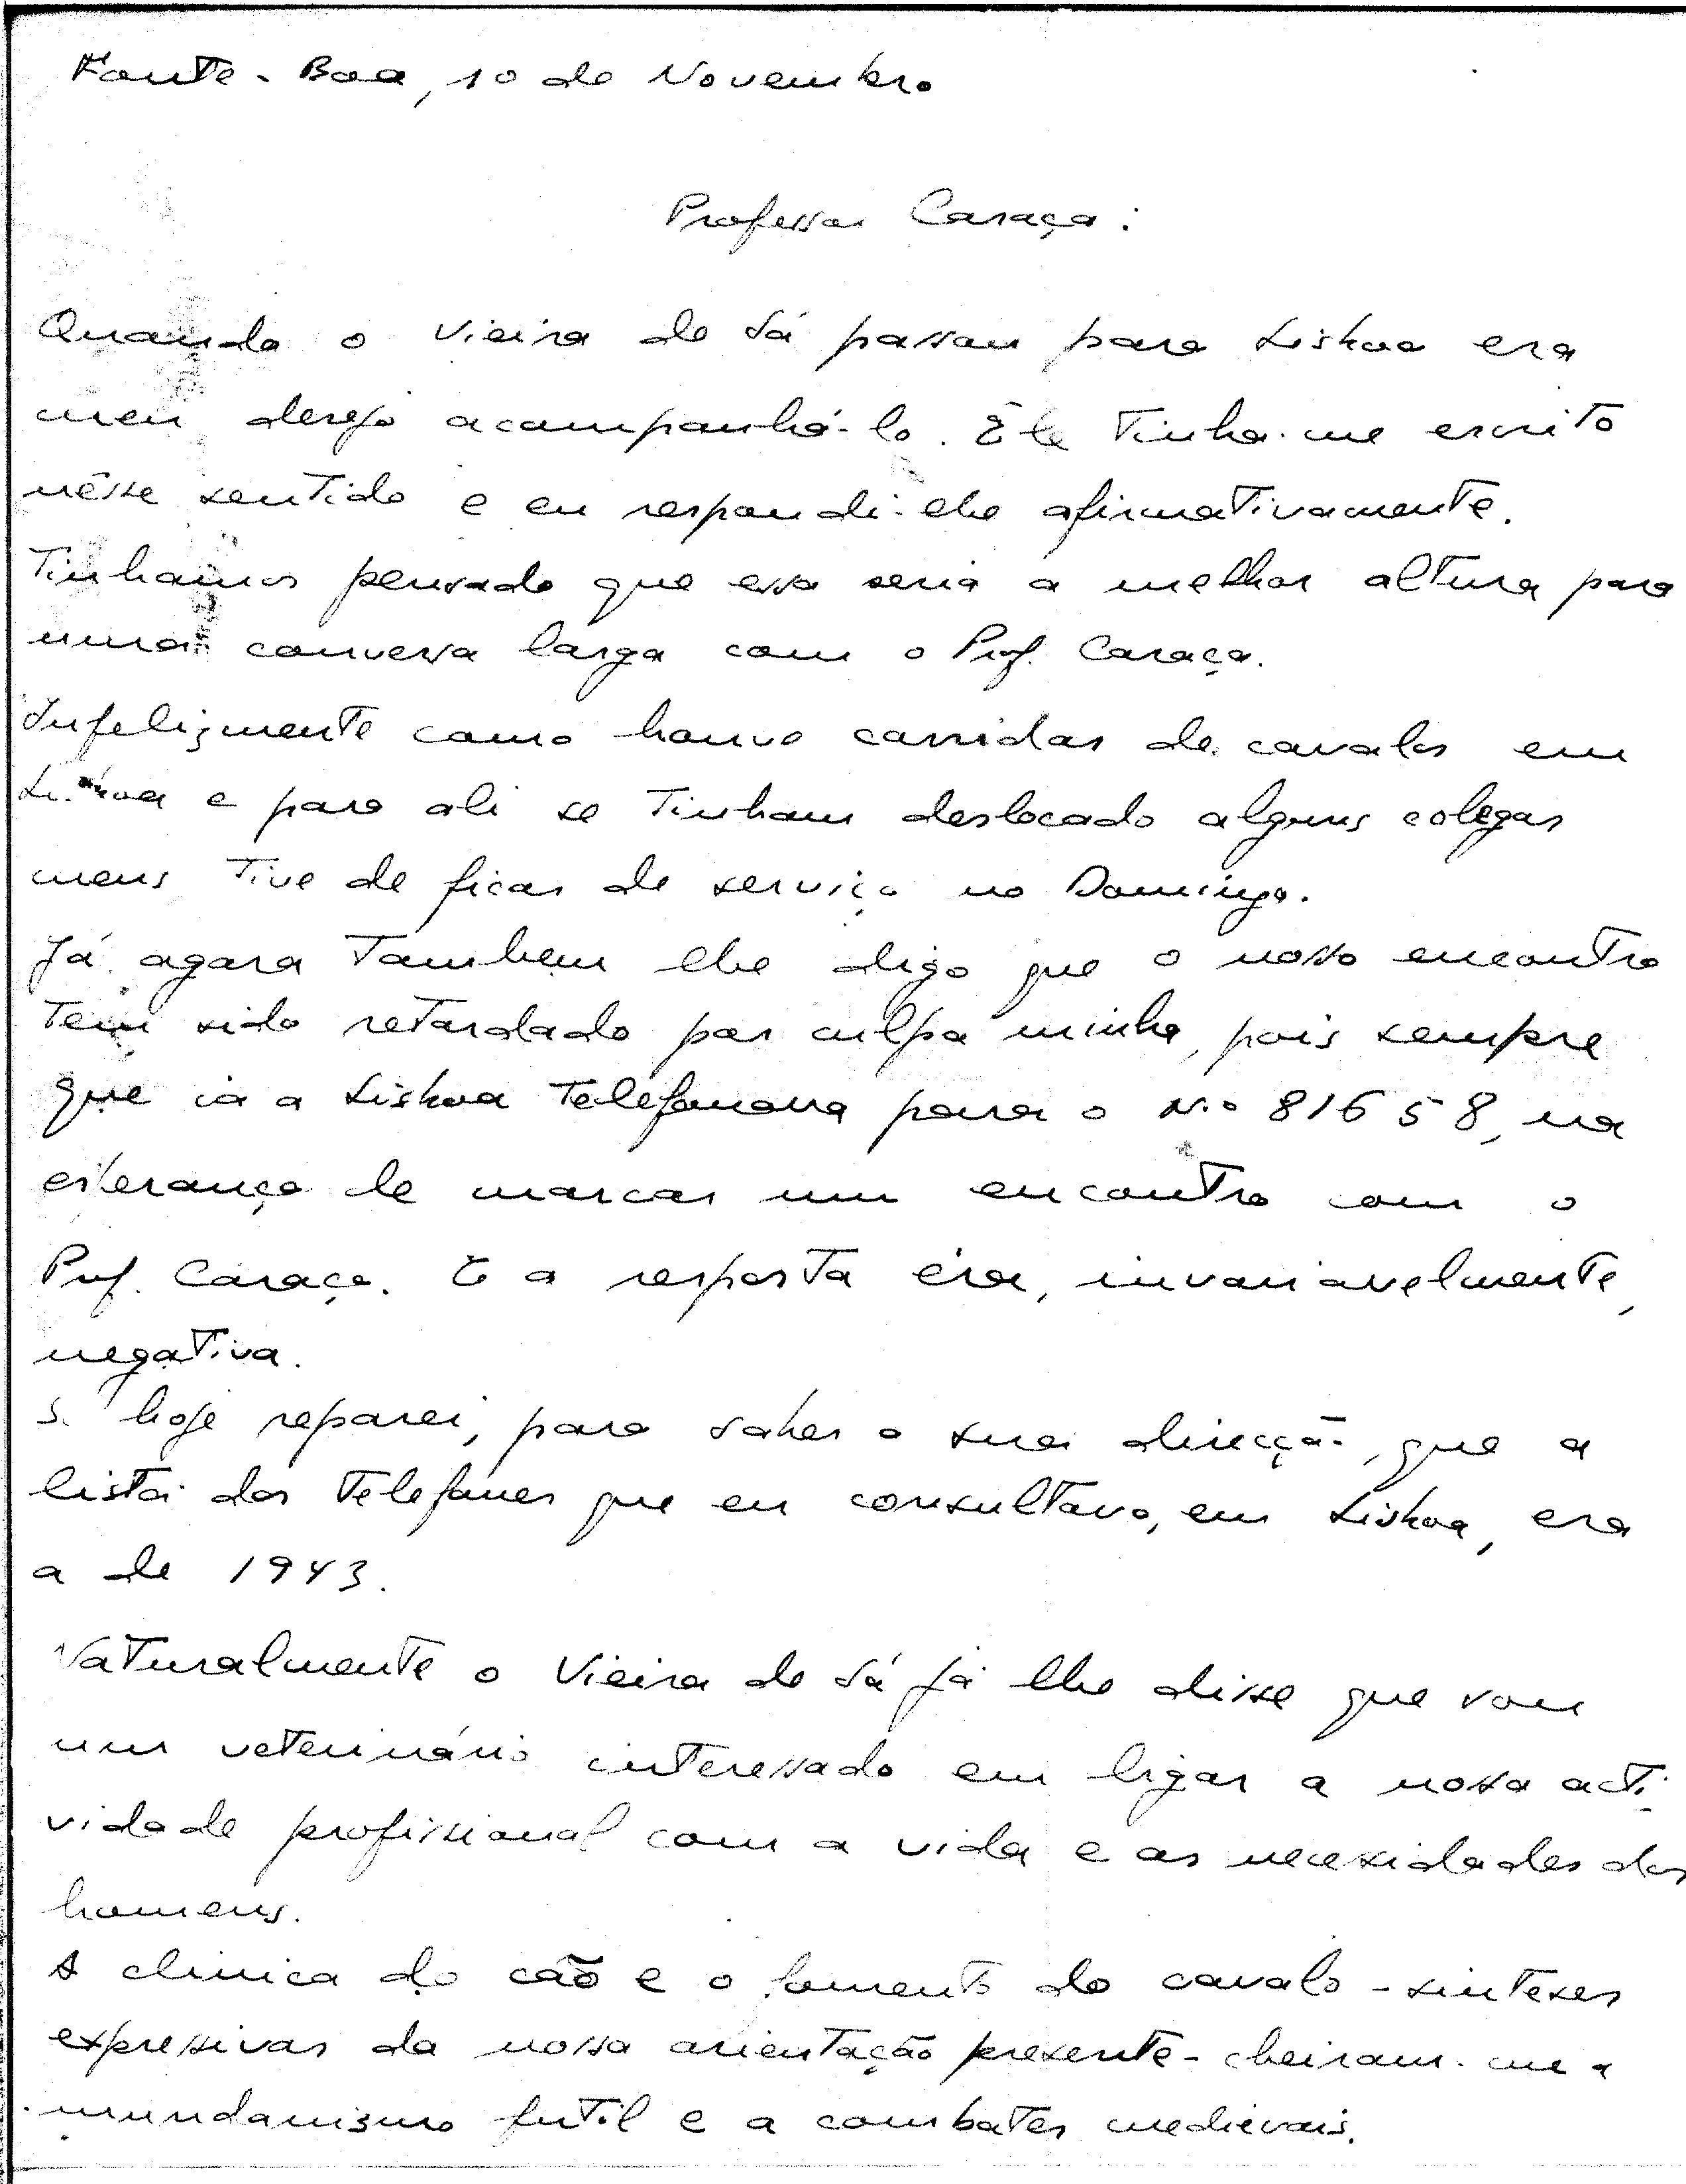 Fonte-Boa, 10 de Novembro
Professor Caraça:
Quando o Vieira de Sá passou para Lisboa era
meu desejo acompanhá-lo. Êle tinha-me escrito
nêsse sentido e eu respondi-lhe afirmativamente.
Tinhamos pensado que essa seria a melhor altura para
uma conversa larga com o Prof. Caraça.
Infelizmente como houve corridas de cavalos em
Lisboa e para ali se tinham deslocado alguns colegas
meus tive de ficar de serviço no Domingo.
Já agora tambem lhe digo que o nosso encontro
tem sido retardado por culpa minha, pois sempre
que ia a Lisboa telefonava para o N.º 81658, na
esperança de marcar um encontro com o
Prof. Caraça. E a resposta éra, invariavelmente,
negativa.
Só hoje reparei, para saber a sua direcção, que a
lista dos telefones que eu consultava, em Lisboa, era
a de 1943.
Naturalmente o Vieira de Sá já lhe disse que sou
um veterinário interessado em ligar a nossa acti-
vidade profissional com a vida e as necessidades dos
homens.
A clinica do cão e o fomento do cavalo - sinteses
expressivas da nossa orientação presente - cheiram-me a
mundanismo futil e a combates medievais.